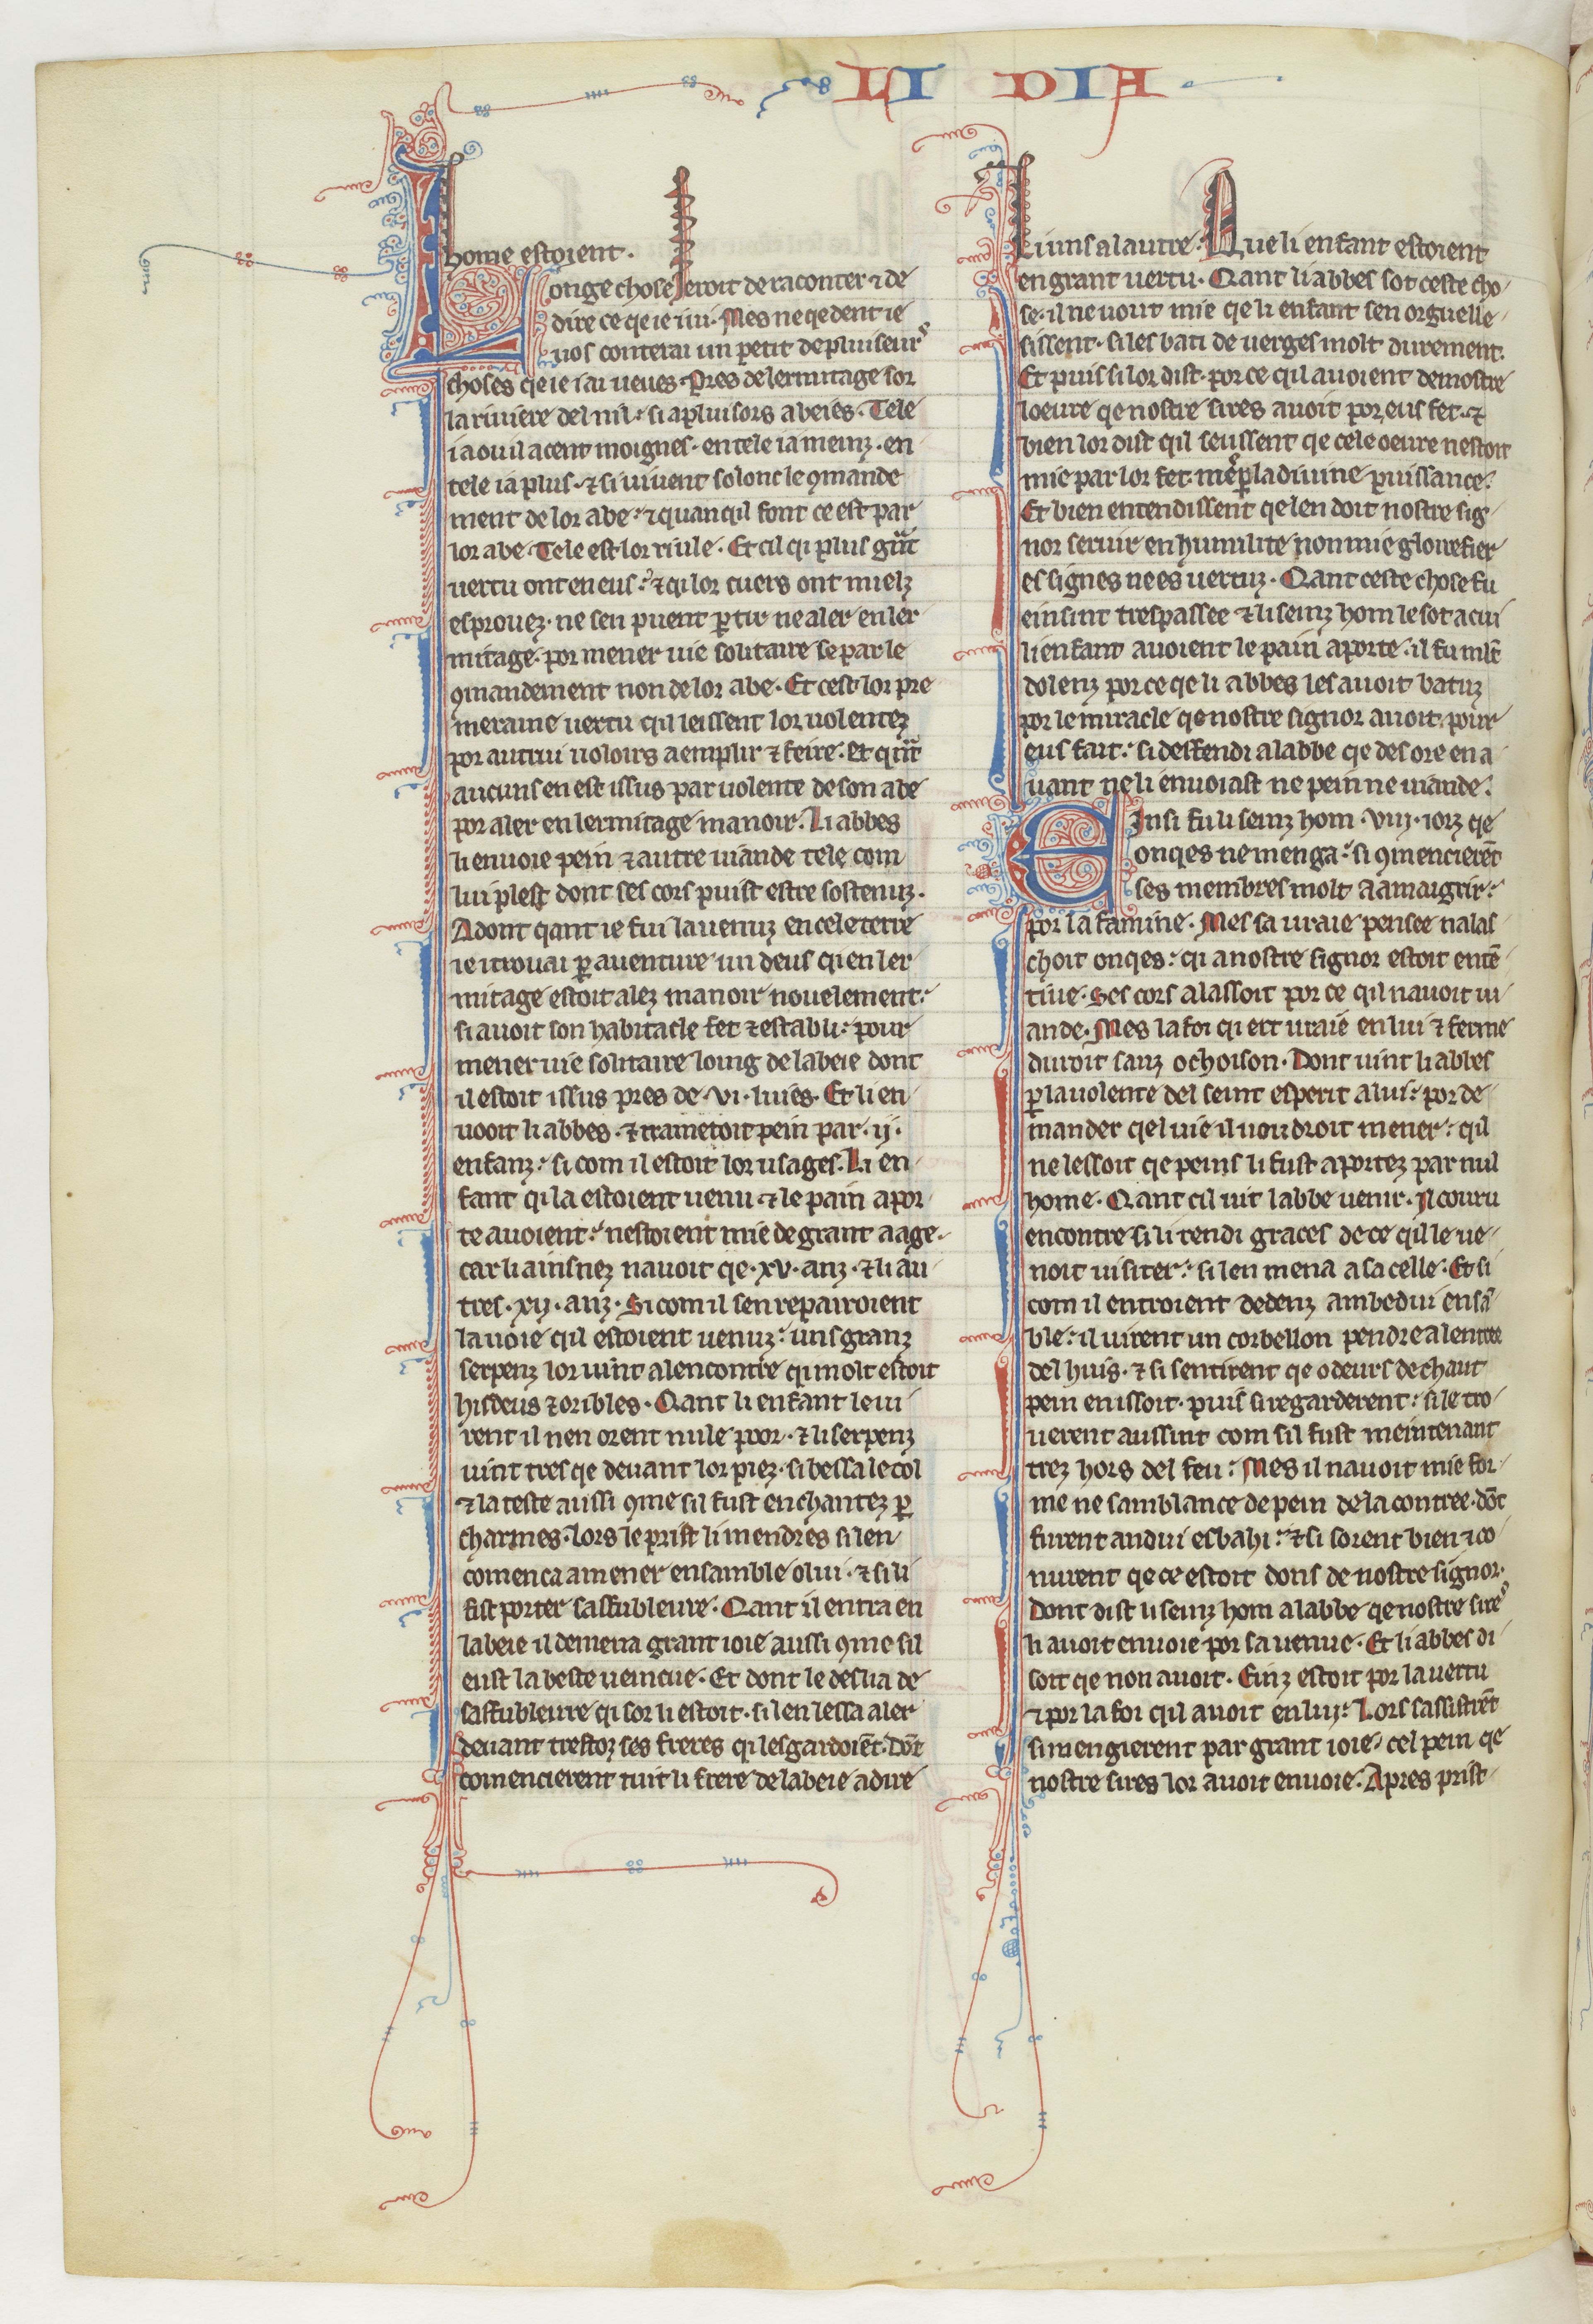 LI DIA
home estoient.
Longe chose seroit de raconter ⁊ de
dire ce qe ie ui. Mes neqedent ie
uos conterai un petit de pluiseurs
choses qe ie iai ueues. Pres de lermitage sor
la riuiere del nil. si a pluisors abeies. Tele
i a ou il a cent moignes. en tele i a meinz. en
tele i a plus. ⁊ si uiuent solonc le ꝯmande
ment de lor abe. ⁊ quanqil font ce est par
lor abe. Tele est lor riule. Et cil qi plus gͣnt
uertu ont en eus. ⁊ qi lor cuers ont mielz
esprouez. ne sen puent ꝑtir ne aler en ler
mitage. por mener uie solitaire se par le
ꝯmandement non de lor abe. Et cest lor pre
meraine uertu qil leissent lor uolentez
por autrui uoloirs aemplir ⁊ feire. Et qͣnt
aucuns en est issus par uolente de son abe
por aler en lermitage manoir. Li abbes
li enuoie pein ⁊ autre uiande tele com
lui plest dont ses cors puist estre sostenuz.
Adont qant ie fui la uenuz en cele terre
ie i trouai ꝑ auenture un deus qi en ler
mitage estoit alez manoir nouelement.
si auoit son habitacle fet ⁊ establi. pour
mener uie solitaire loing de labeie dont
il estoit issus pres de .vi. liues. Et li en
uooit li abbes. ⁊ trametoit pein par .ij.
enfanz. si com il estoit lor usages. Li en
fant qi la estoient uenu ⁊ le pain apor
te auoient. nestoient mie de grant aage.
car li ainsnez nauoit qe .xv. anz. ⁊ li au
tres .xij. anz. Si com il sen repairoient
la uoie qil estoient uenuz. uns granz
serpenz lor uint a lencontre qi molt estoit
hisdeus ⁊ oribles. Qant li enfant le ui
rent il nen orent nule poor. ⁊ li serpenz
uint tres qe deuant lor piez. si bessa le col
⁊ la teste aussi ꝯme sil fust enchantez ꝑ
charmes. lors le prist li mendres si len
comenca amener ensamble o lui. ⁊ si li
fist porter saffubleure. Qant il entra en
labeie il demena grant ioie aussi ꝯme sil
eust la beste ueincue. Et dont le deslia de
saffubleure qi sor li estoit. si len lessa aler
deuant trestoz ses freres qi lesgardoiēt. dōt
comencierent tuit li frere de labeie a dire
Li uns a lautre. Que li enfant estoient
en grant uertu. Qant li abbes sot ceste cho
se. il ne uout mie qe li enfant sen orguelle
sissent. si les bati de uerges molt durement.
Et puis si lor dist. por ce qil auoient demostre
loeure qe nostre sires auoit por eus fet. ⁊
bien lor dist qil seussent qe cele oeure nestoit
mie par lor fet. mes ꝑ la diuine puissance.
Et bien entendissent qe len doit nostre sig
nor seruir en humilite non mie glorefier
es signes ne es uertuz. Qant ceste chose fu
einsint trespassee ⁊ li seinz hom le sot a cui
li enfant auoient le pain aporte. il fu mlt
dolenz por ce qe li abbes les auoit batuz
por le miracle qe nostre signor auoit pour
eus fait. si deffendi a labbe qe des ore en a
uant ne li enuoiast ne pein ne uiande.
Einsi fu li seinz hom .viij. iorz qe
onqes ne menga. si ꝯmencierēt
ses membres molt a amaigrir.
por la famine. Mes sa uraie pensee nalas
choit onqes. qi a nostre signor estoit entē
tiue. Ses cors alassoit por ce qil nauoit ui
ande. Mes la foi qi ert uraie en lui ⁊ ferme
duroit sanz ochoison. Dont uint li abbes
ꝑ la uolente del seint esperit a lui. por de
mander qel uie il uoudroit mener. qil
ne lessoit qe peins li fust aportez par nul
home. Qant cil uit labbe uenir. Il couru
encontre si li rendi graces de ce qil le ue
noit uisiter. si len mena a sa celle. Et si
com il entroient dedenz ambedui ensā
ble. il uirent un corbellon pendre a lentree
del huis. ⁊ si sentirent qe odeurs de chaut
pein en issoit. puis si regarderent. si le tro
uerent aussint com sil fust meintenant
trez hors del feu. Mes il nauoit mie for
me ne samblance de pein de la contree. dōt
furent andui esbahi. ⁊ si sorent bien ⁊ co
nurent qe ce estoit dons de nostre signor.
Dont dist li seinz hom a labbe qe nostre sires
li auoit enuoie por sa uenue. Et li abbes di
soit qe non auoit. Einz estoit por la uertu
⁊ por la foi qil auoit en luy. Lors sassistrēt
si mengierent par grant ioie. cel pein qe
nostre sires lor auoit enuoie. Apres prist